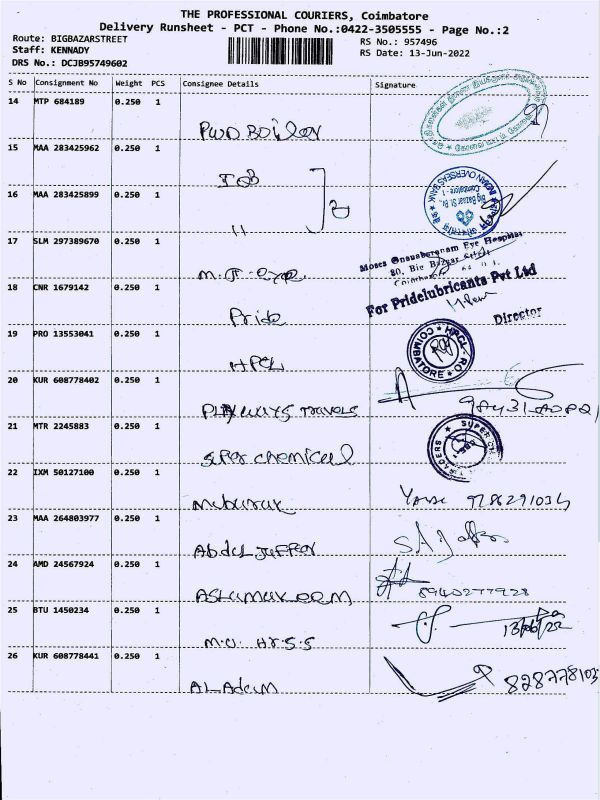 THE PROFESSIONAL COURIERS, Coimbatore
Delivery Runsheet - PCT - Phone No.:0422-3505555 - Page No.:2
Route: BIGBAZARSTREET
RS No.: 957496
Staff: KENNADY
RS Date: 13-Jun-2022
DRS No.: DCJB95749602
S No Consignment No Weight PCS Consignee Details Signature
14 MTP 684189 0.250 1
15 MAA 283425962 0.250 1
IOB
16 MAA 283425899 0.250 1
"
INDIAN OVERSEAS BANK
Big Bazaar St. Br.,
Coimbatore - 1
17 SLM 297389670 0.250 1
Moses Gnanabaranam Eye Hospital
80, Big Bazaar Street
18 CNR 1679142 0.250 1
Pride
For Pridelubricants Pvt Ltd
Director
19 PRO 13553041 0.250 1
HPCL
HPCL
COIMBATORE
20 KUR 608778402 0.250 1
Travels
21 MTR 2245883 0.250 1
Super chemical
SUPER CH
TRADERS
22 IXM 50127100 0.250 1
Mubarak
23 MAA 264803977 0.250 1
Abdul Jaffer
24 AMD 24567924 0.250 1
8940277928
25 BTU 1450234 0.250 1
M.U. Hr.S.S
13/06/22
26 KUR 608778441 0.250 1